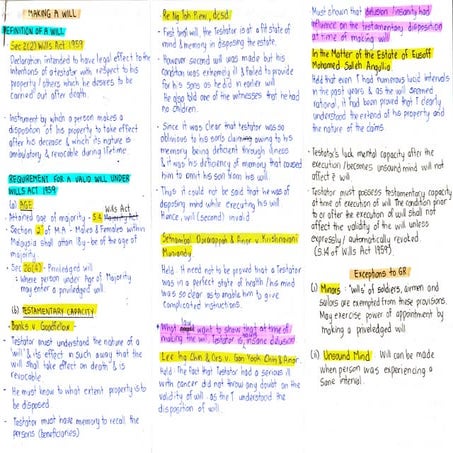 MAKING A WILL
DEFINITION OF A WILL
Sec 2(2) Wills Act 1959
Declaration intended to have legal effect to the
intentions of a testator with respect to his
property / others which he desires to be
carried out after death.
Instrument by which a person makes a
disposition of his property to take effect
after his decease & which its nature is
ambulatory & revocable during lifetime
REQUIREMENT FOR A VALID WILL UNDER
WILLS ACT 1959
(a) AGE
Wills Act
- Attained age of majority - S.4
- Section 2 of M.A - Males & Females within
Malaysia shall attain 18y- be of the age of
majority.
- Sec 26(4) Priviledged will
: Where person under Age of Majority
may enter a priviledged will.
(b) TESTAMENTARY CAPACITY
- Banks v. Goodfellow
- Testator must understand the nature of a
'will' & its effect in such away that the
will shall take effect on death & is
revocable
- He must know to what extent property is to
be disposed
- Testator must have memory to recall the
persons (beneficiaries)
Re Ng Toh Piew, dcsd
- First will, the Testator is at a fit state of
mind & memory in disposing the estate.
- However second will was made but his
condition was extremely ill & failed to provide
for his sons as he did in earlier will
He also told one of the witnesses that he had
no children.
- Since it was clear that testator was so
oblivious to his sons owing to his
memory being deficient through illness
& it was his deficiency of memory that caused
him to omit his son from his will.
- Thus it could not be said that he was of
disposing mind while executing his will
Hence, will (second) invalid
v Krishnavani
Held: It need not to be proved that a Testator
was in a perfect state of health / his mind
was so clear as to enable him to give
complicated instructions.
What want to show that at time of
making the will Testator insane delusion
Lee Ing Chin & Ors v. Gan Yook Chin & Anor
Held: The fact that Testator had a serious ill
with cancer did not throw any doubt on the
validity of will as the T understood the
disposition of will.
Must shown that delusion / insanity had
influence on the testamentary disposition
at time of making will
In the Matter of the Estate of Eusoff
Mohamed Salleh Angullia
Held that even T had numerous lucid intervals
in the past years & as the will seemed
rational, it had been proved that T clearly
understood the extend of his property and
the nature of the claims.
Testator's lack mental capacity after the
execution / becomes unsound mind will not
affect will
Testator must possess testamentary capacity
at time of execution of will. The condition prior
to or after the execution of will shall not
affect the validity of the will unless
expressly / automatically revoked.
(S.14 of Wills Act 1959)
Exceptions to GR
(i) Minors : 'wills' of soldiers, airmen and
sailors are exempted from these provisions.
May exercise power of appointment by
making a priviledged will
(ii) Unsound Mind : Will can be made
when person was experiencing a
sane interval.